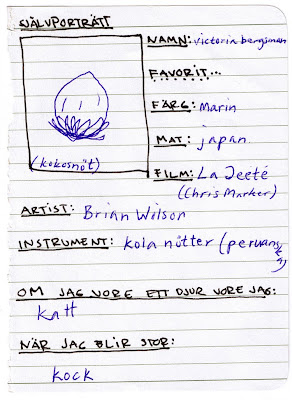 SJÄLVPORTRÄTT
NAMN: victoria bergsman
FAVORIT...
FÄRG: Marin
MAT: japan
(kokosnöt)
FILM: La Jeeté
(Chris Marker)
ARTIST: Brian Wilson
INSTRUMENT: kola nötter (peruanska)
OM JAG VORE ETT DJUR VORE JAG:
katt
NÄR JAG BLIR STOR:
kock